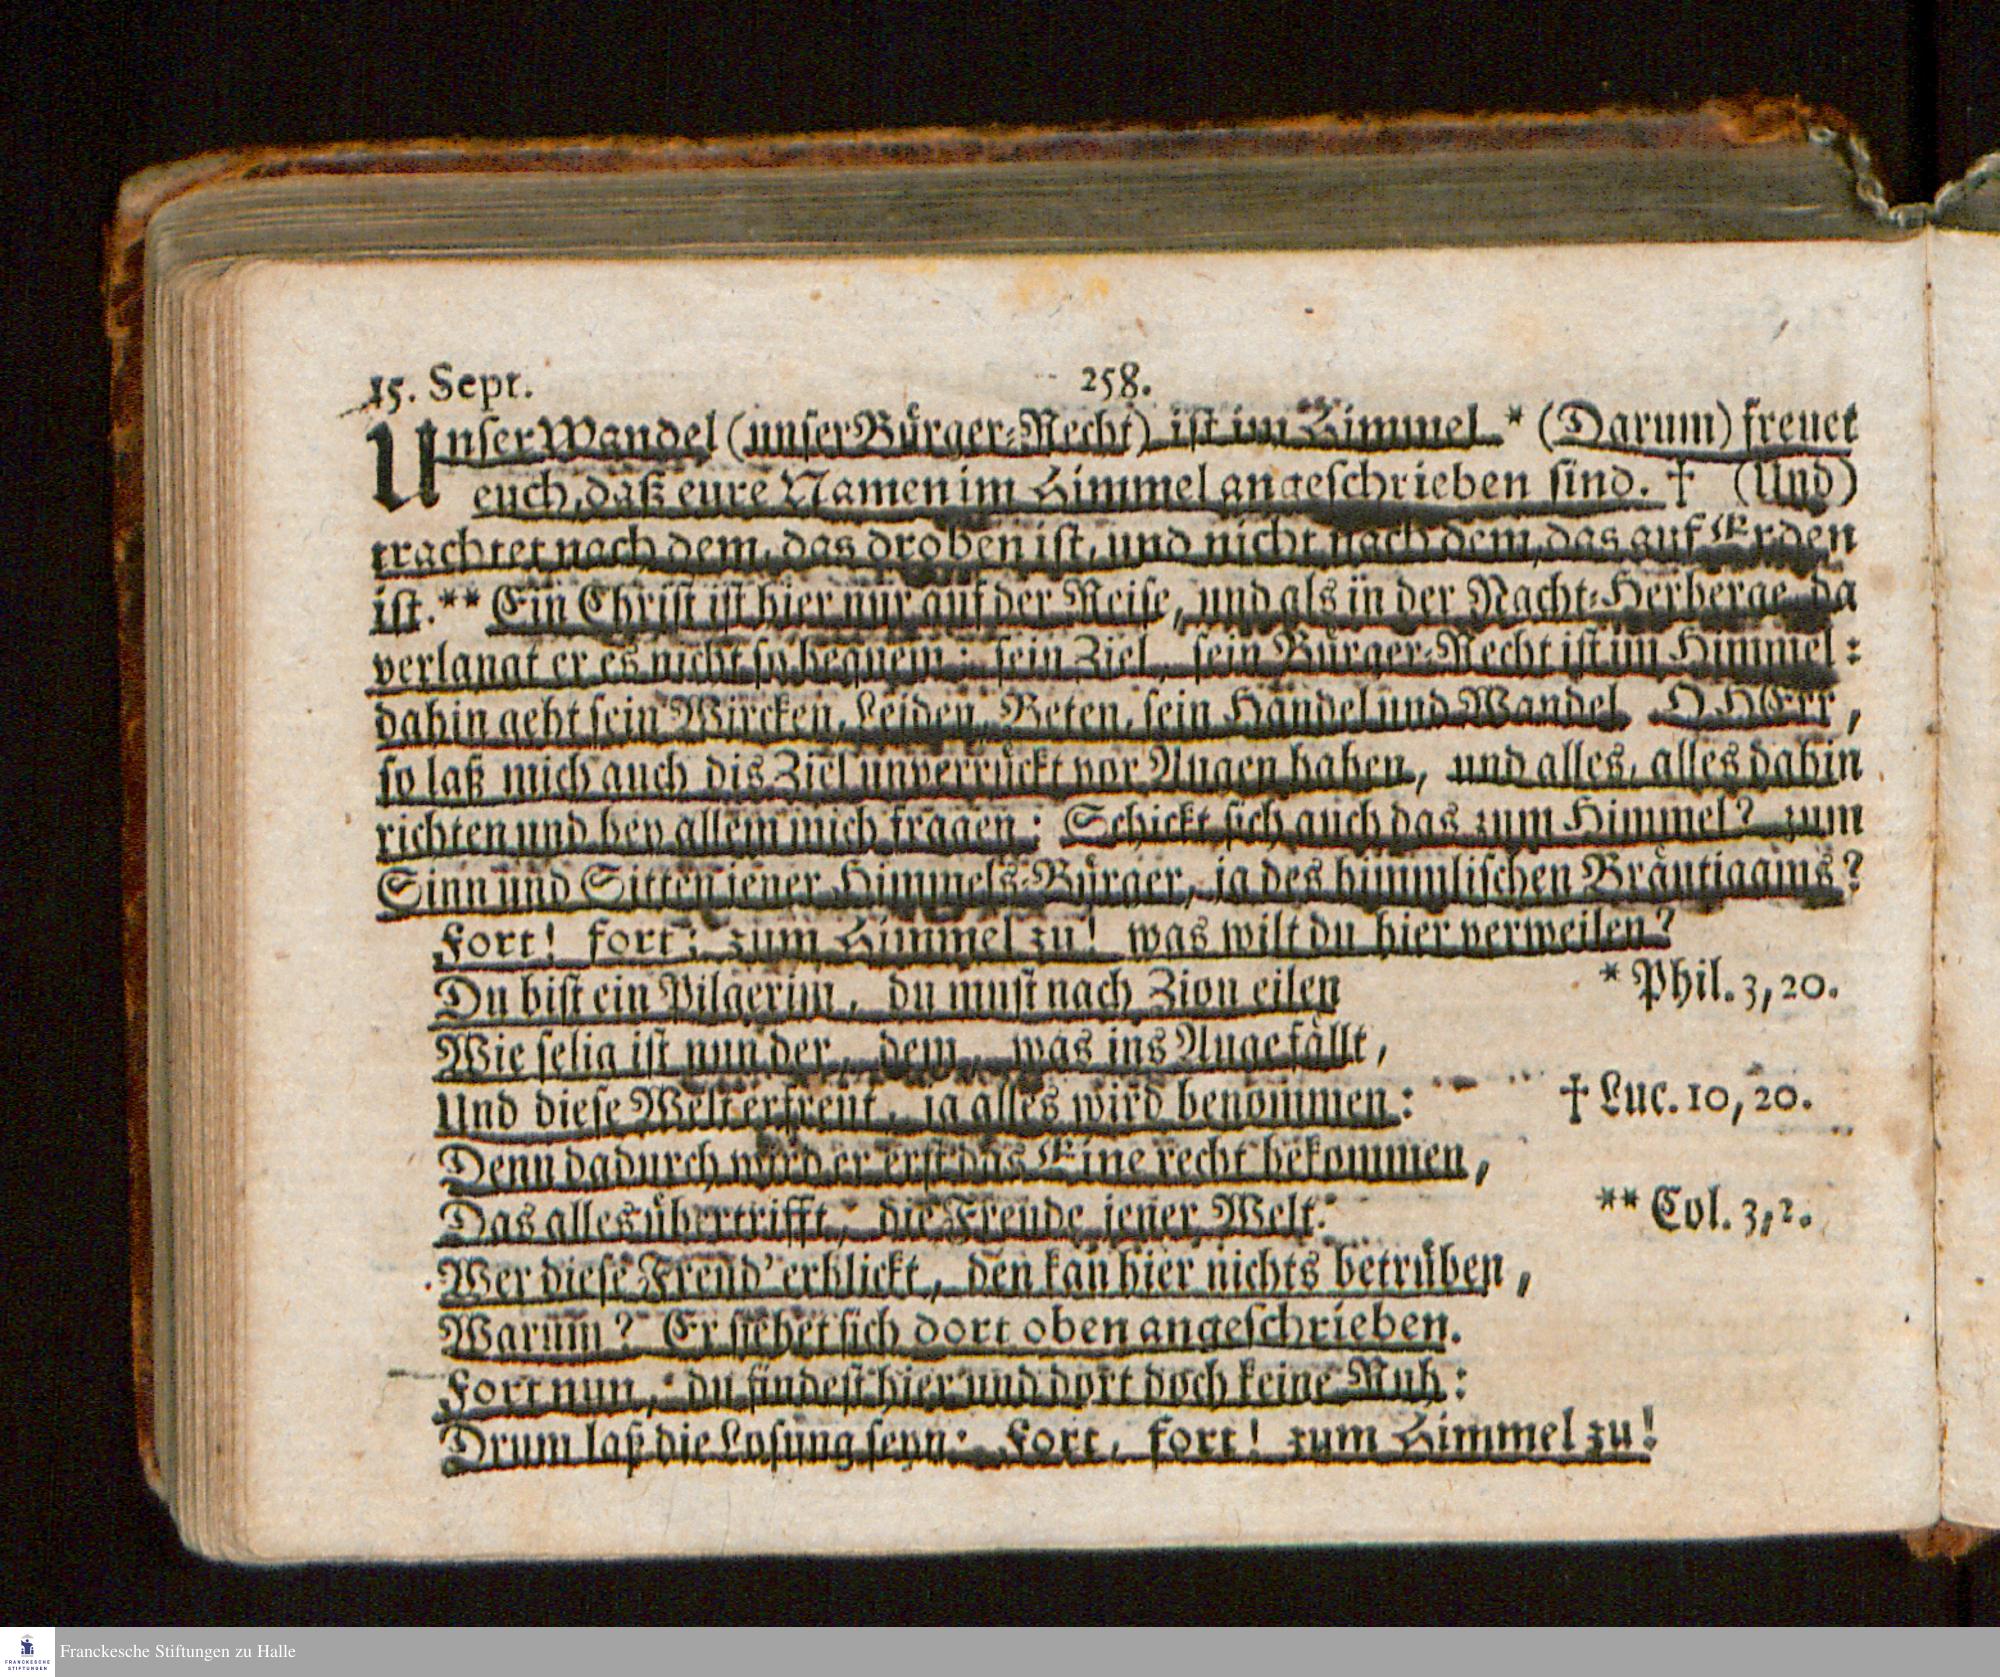 15. Sept. 258.
Unser Wandel (unser Bürger-Recht) ist im Himmel * (Darum) freuet
euch, daß eure Namen im Himmel angeschrieben sind. † (Und)
trachtet nach dem, das droben ist, und nicht nach dem, das auf Erden
ist. ** Ein Christ ist hier nur auf der Reise, und als in der Nacht-Herberge, da
verlangt er es nicht so bequem: sein Ziel, sein Bürger-Recht ist im Himmel:
dahin geht sein Wircken, Leiden, Beten, sein Handel und Wandel. O HErr,
so laß mich auch dis Ziel unverrückt vor Augen haben, und alles, alles dahin
richten und bey allem mich fragen: Schickt sich auch das zum Himmel? zum
Sinn und Sitten jener Himmels-Bürger, ja des himmlischen Bräutigams?
Fort! fort; zum Himmel zu! was wilt du hier verweilen?
Du bist ein Pilgerim, du must nach Zion eilen
* Phil. 3, 20.
Wie selig ist nun der, dem, was ins Auge fällt,
Und diese Welt erfreut, ja alles wird benommen:
† Luc. 10, 20.
Denn dadurch wird er erst das Eine recht bekommen,
Das alles übertrifft, die Freude jener Welt.
** Col. 3, 2.
Wer diese Freud' erblickt, den kan hier nichts betrüben,
Warum? Er siehet sich dort oben angeschrieben.
Fort nun, du findest hier und dort doch keine Ruh:
Drum laß die Losung seyn: Fort, fort! zum Himmel zu!
FRANCKESCHE
STIFTUNGEN
Franckesche Stiftungen zu Halle